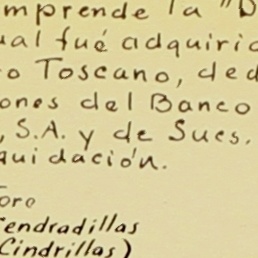 mprende la "D
ual fué adquiri
o Toscano, ded
ones del Banco
, S.A. y de Sucs.
quidación.
Toro
endradillas
Cindrillas)